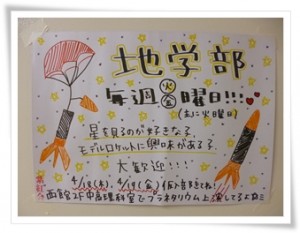 地学部
毎週火金曜日!!!
(おもに火曜日)
星を見るのが好きな子
モデルロケットに興味がある子
大歓迎!!!
4/18(木), 4/19(金)
西館2F中高理科室でプラネタリウム上演してるよ